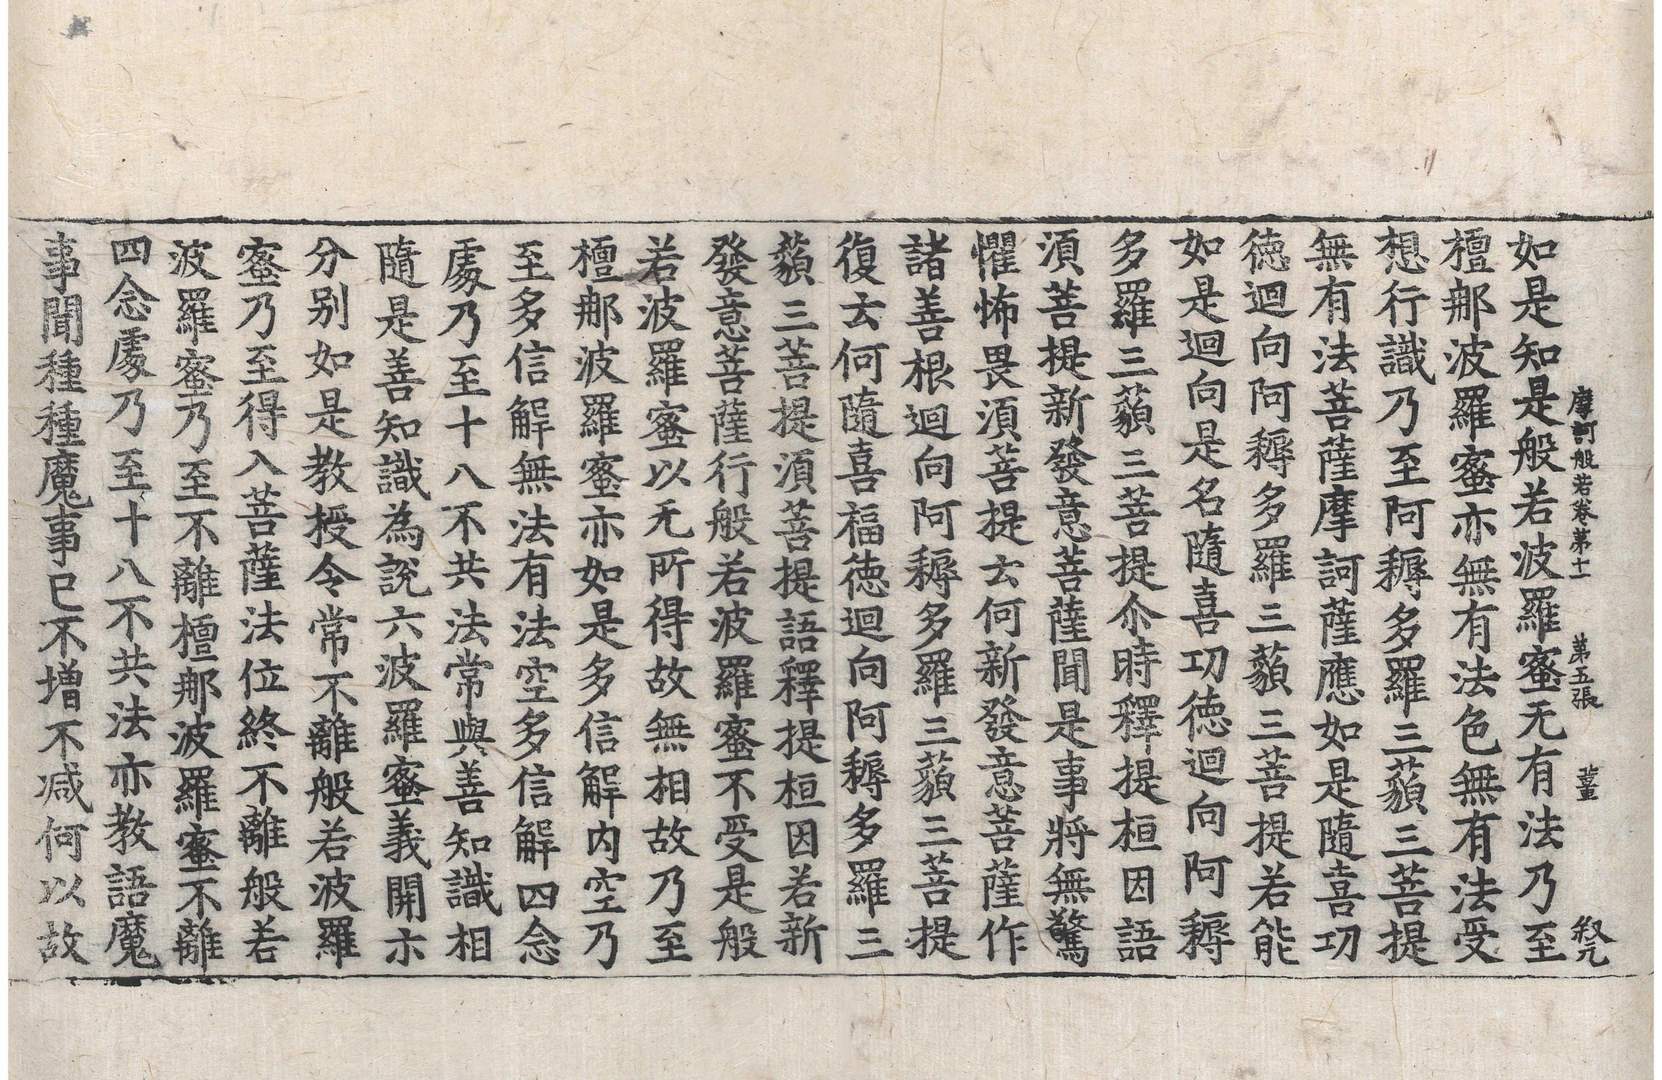 摩訶般若卷第十一 第五張 董 叔元
如是知是般若波羅蜜无有法乃至
檀那波羅蜜亦無有法色無有法受
想行識乃至阿耨多羅三藐三菩提
無有法菩薩摩訶薩應如是隨喜功
德迴向阿耨多羅三藐三菩提若能
如是迴向是名隨喜功德迴向阿耨
多羅三藐三菩提尒時釋提桓因語
須菩提新發意菩薩聞是事將無驚
懼怖畏須菩提云何新發意菩薩作
諸善根迴向阿耨多羅三藐三菩提
復云何隨喜福德迴向阿耨多羅三
藐三菩提須菩提語釋提桓因若新
發意菩薩行般若波羅蜜不受是般
若波羅蜜以无所得故無相故乃至
檀那波羅蜜亦如是多信解内空乃
至多信解無法有法空多信解四念
處乃至十八不共法常與善知識相
隨是善知識為說六波羅蜜義開示
分别如是教授令常不離般若波羅
蜜乃至得入菩薩法位終不離般若
波羅蜜乃至不離檀那波羅蜜不離
四念處乃至十八不共法亦教語魔
事聞種種魔事已不增不減何以故